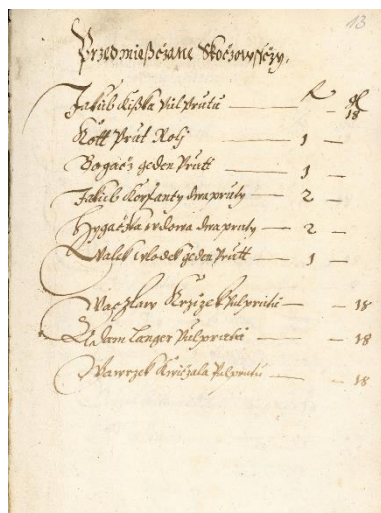 13
Przedmießčzane Skočzowsčzy.
Jakub Kißka Pul Prutu — — 18
Kott Prut Rolj — 1 —
Bogacž geden Prutt — 1 —
Jakub Korfanty dwa pruty — 2 —
wdowa dwa pruty — 2 —
Walek geden Prutt — 1 —
Waczlaw Krziżek Pul prutu — — 18
Adam Langer Pul prutu — — 18
Wawrzek Kwičzala Pul prutu — — 18